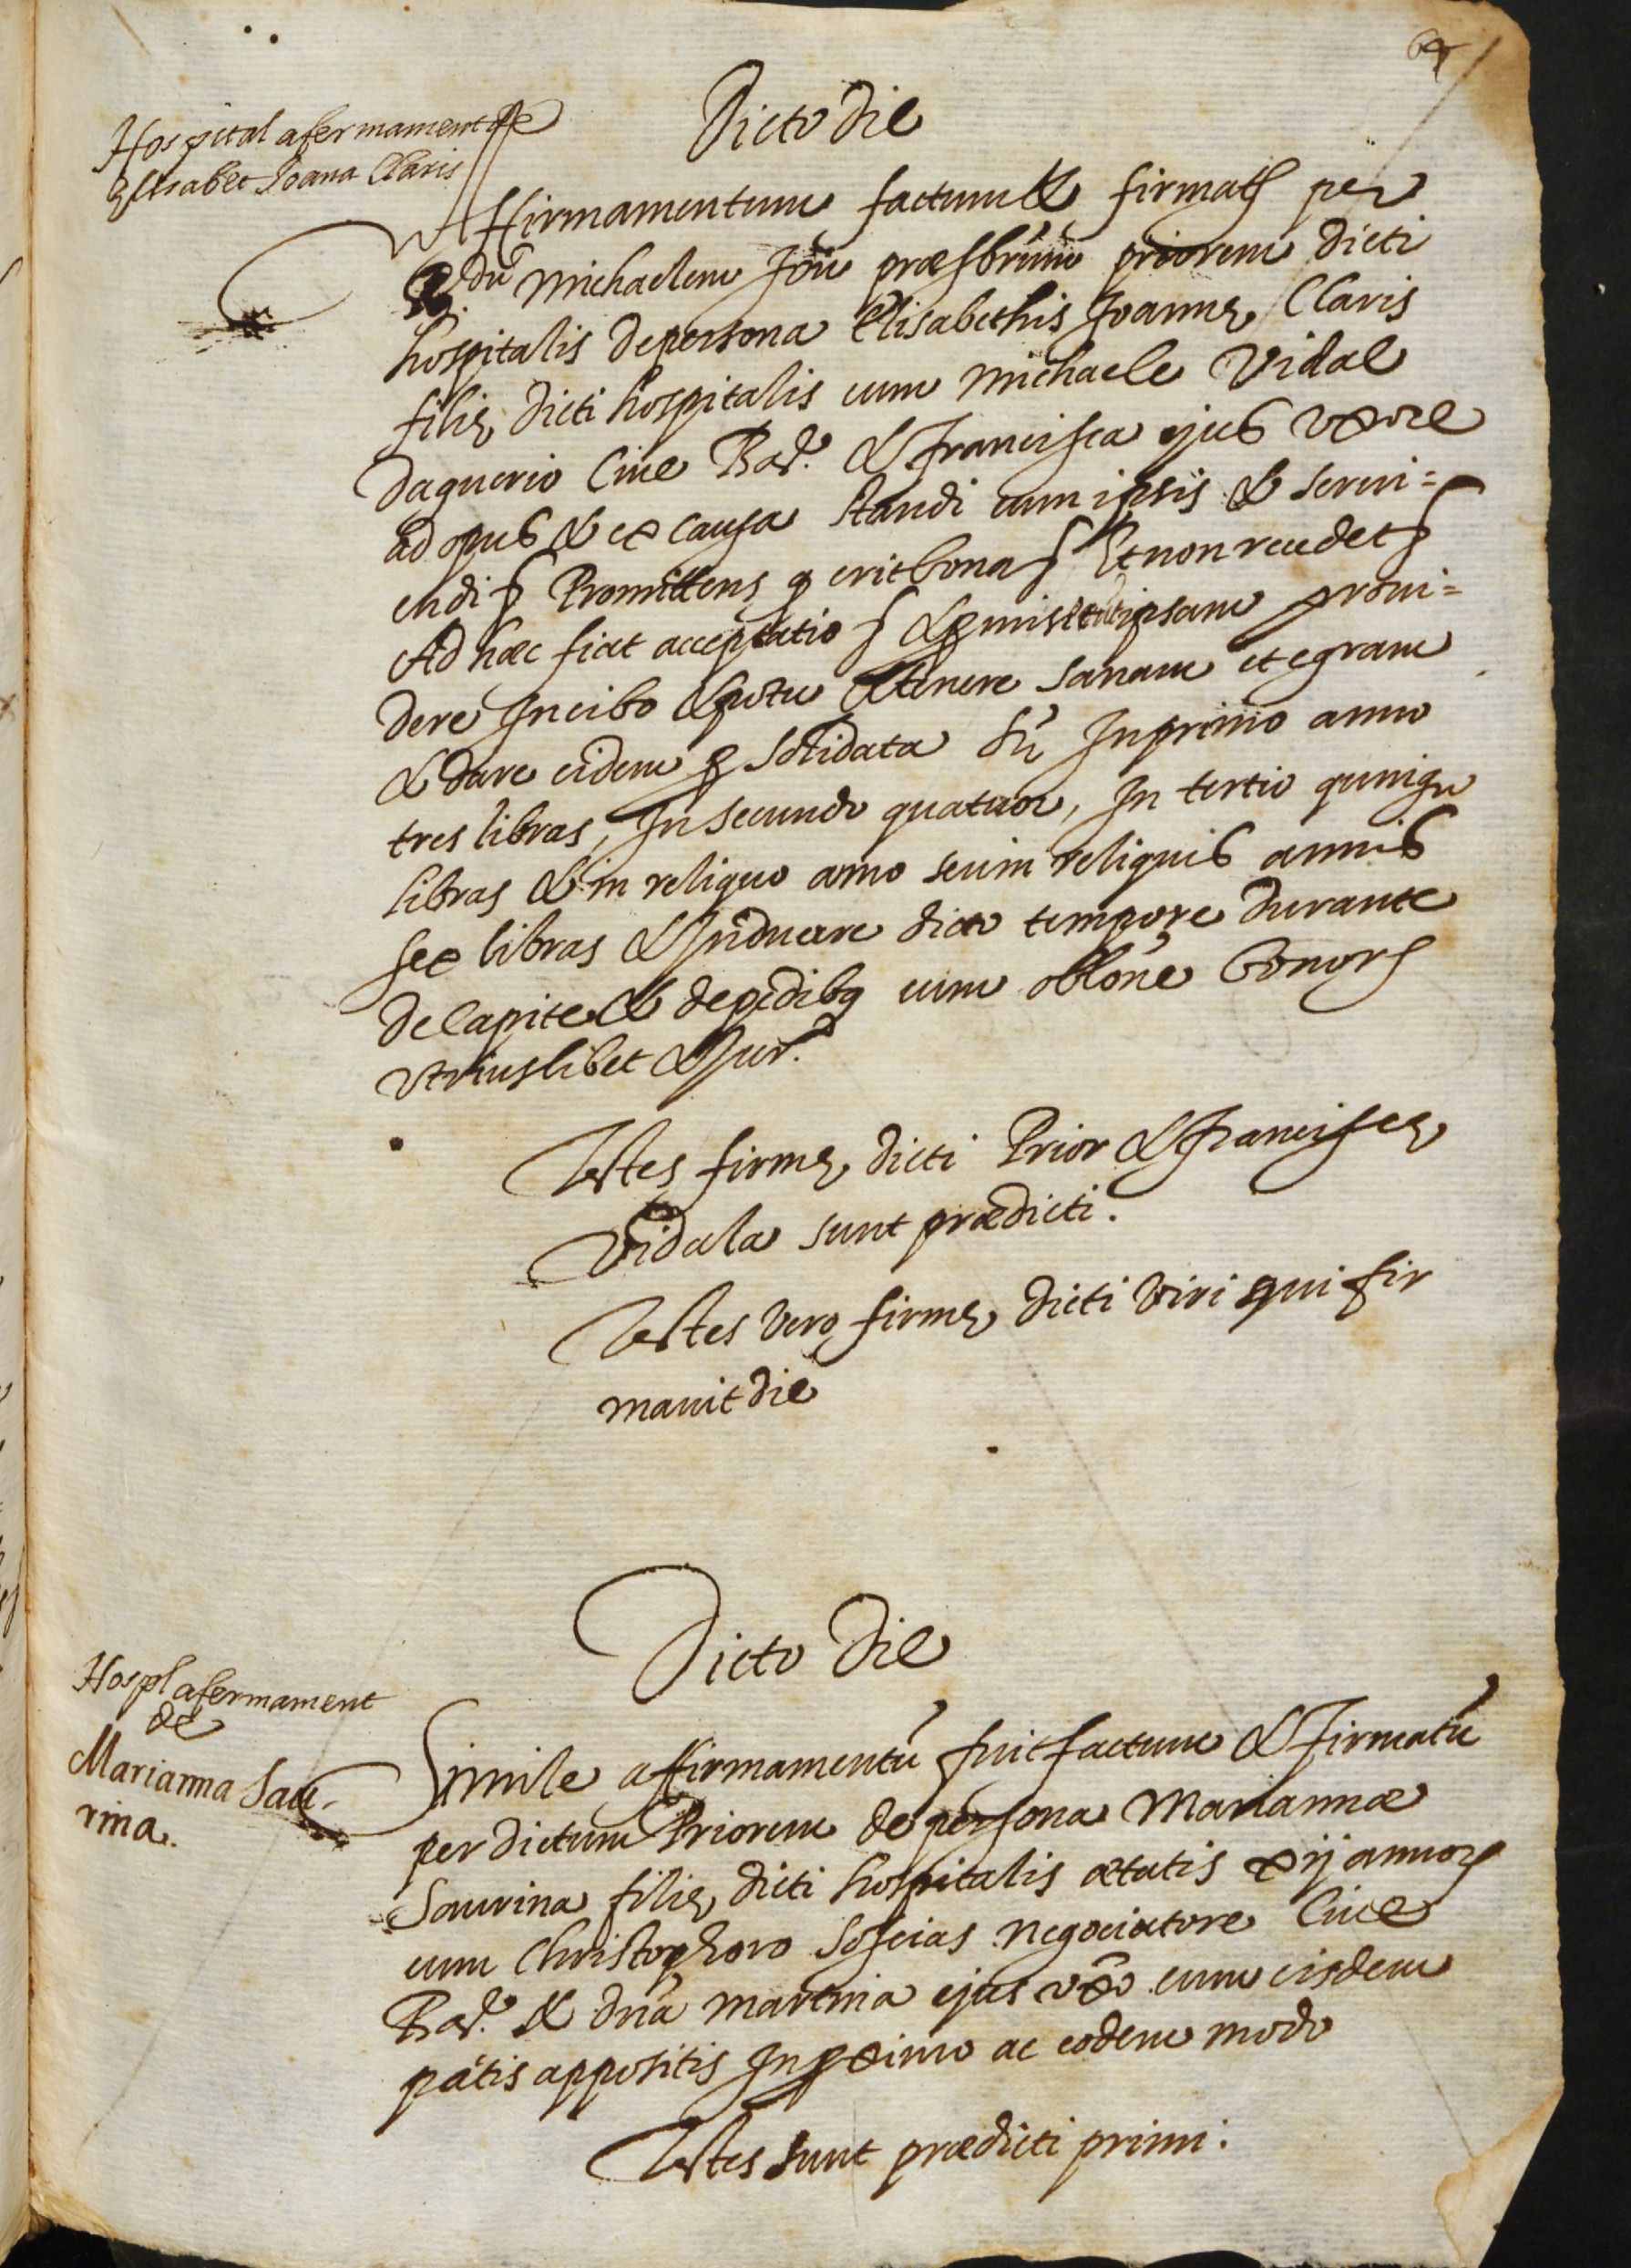 64
Dicto die
Hospital afermament de
Elisabet Joana Claris
Affirmamentum factum & firmat per
R.dum Michaelem Jou præsbrum priorem dicti
hospitalis de persona Elisabethis Joannę Claris
filię dicti hospitalis cum Michaele Vidal
daguerio Cive Bar. & Francisca ejus uxore
ad opus & ex causa standi cum ipsis & servi=
endi Promittens q erit bona Et non recedet
Ad hæc fiat acceptatio & ipsam provi=
dere In cibo & potu & tenere sanam et egram
& dare eidem p solidata In primo anno
tres libras, In secundo quatuor, In tertio quinqu
libras & in reliquo anno seu in reliquis annis
sex libras & Induere dicto tempore durante
de capite & de pedibq cum oblone bonor
utriuslibet & Jur.
Testes firmę dicti Prior & Franciscę
Vidala sunt prædicti.
Testes vero firmę dicti viri qui fir
mavit die
Dicto die
Hospl afermament
de
Marianna Sau-
rina.
Simile affirmamentu fuit factum & firmatu
per dictum Priorem de persona Mariannæ
Saurina filię dicti hospitalis ætatis xij annor
cum Christophoro Soscias negociatore Cive
Bar. & dna Martina ejus uxo cum eisdem
patis appositis In pximo ac eodem modo
Testes sunt prædicti primi.